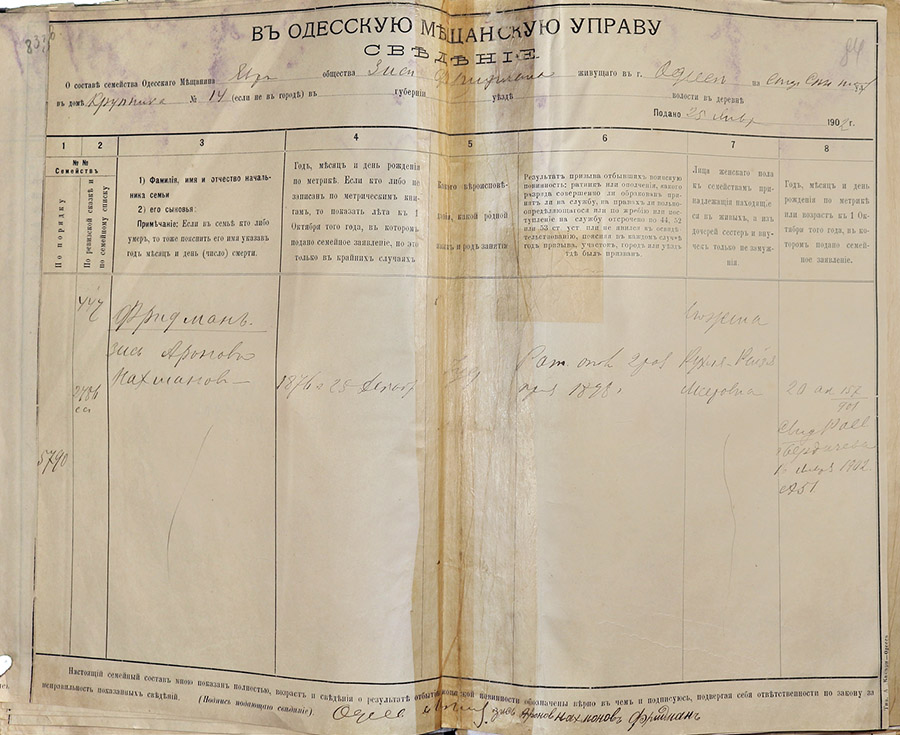 84
ВЪ ОДЕССКУЮ МѢЩАНСКУЮ УПРАВУ
СВѢДѢНІЕ.
О составѣ семейства Одесскаго Мѣщанина Евр общества Зись Фридмана живущаго въ г. Одессѣ на
въ домѣ Крупника № 14 (если не въ городѣ) въ губерніи уѣздѣ волости въ деревнѣ
Подано 25 Янвр 1902 г.
1 2 3 4 5 6 7 8
№№
Семействъ
По порядку
По ревизской сказкѣ и
по семейному списку
1) Фамилія, имя и отчество началь-
ника семьи
2) его сыновья:
Примѣчаніе: Если въ семьѣ кто либо
умеръ, то тоже пояснить его имя указавъ
годъ мѣсяцъ и день (число) смерти.
Годъ, мѣсяцъ и день рожденія
по метрикѣ. Если кто либо не
записанъ по метрическимъ кни-
гамъ, то показать лѣта къ 1
Октября того года, въ которомъ
подано семейное заявленіе, но это
только въ крайнихъ случаяхъ
Какого вѣроисповѣ-
данія, какой родной
языкъ и родъ занятія
Результатъ призыва отбывшихъ воинскую
повинность: ратникъ или ополченія, какого
разряда совершенно ли обракованъ при-
нятъ ли на службу, на правахъ ли вольно-
опредѣляющагося или по жребію или пос-
тупленіе на службу отсрочено по 44, 52
или 53 ст уст или не явился къ освидѣ-
тельствованію, поясняя въ каждомъ случаѣ
годъ призыва, участокъ, городъ или уѣздъ
гдѣ былъ призванъ.
Лица женскаго пола
къ семействамъ при-
надлежащія находящіе-
ся въ живыхъ, а изъ
дочерей сестеръ и вну-
чекъ только не замуж-
нія.
Годъ, мѣсяцъ и день
рожденія по метрикѣ
или возрастъ къ 1 Ок-
тября того года, въ ко-
торомъ подано семей-
ное заявленіе.
442
Фридманъ.
Зись Ароновъ
Нахмановъ
2486
5790
1876 г 25 Декабр
Іуд
Рат опол 2 раз
при 1898 г
Рухля-Райзя
Меровна
20 ап 157/901
Бердичева
1902
№51
Настоящій семейный составъ мною показанъ полностью, возрастъ и свѣдѣнія о результатѣ отбытія воинской повинности обозначены вѣрно въ чемъ и подписуюсь, подвергая себя отвѣтственности по закону за
неправильность показанныхъ свѣдѣній.
(Подпись подающаго свѣдѣніе). Одесс Зись Ароновъ Нахмановъ Фридманъ